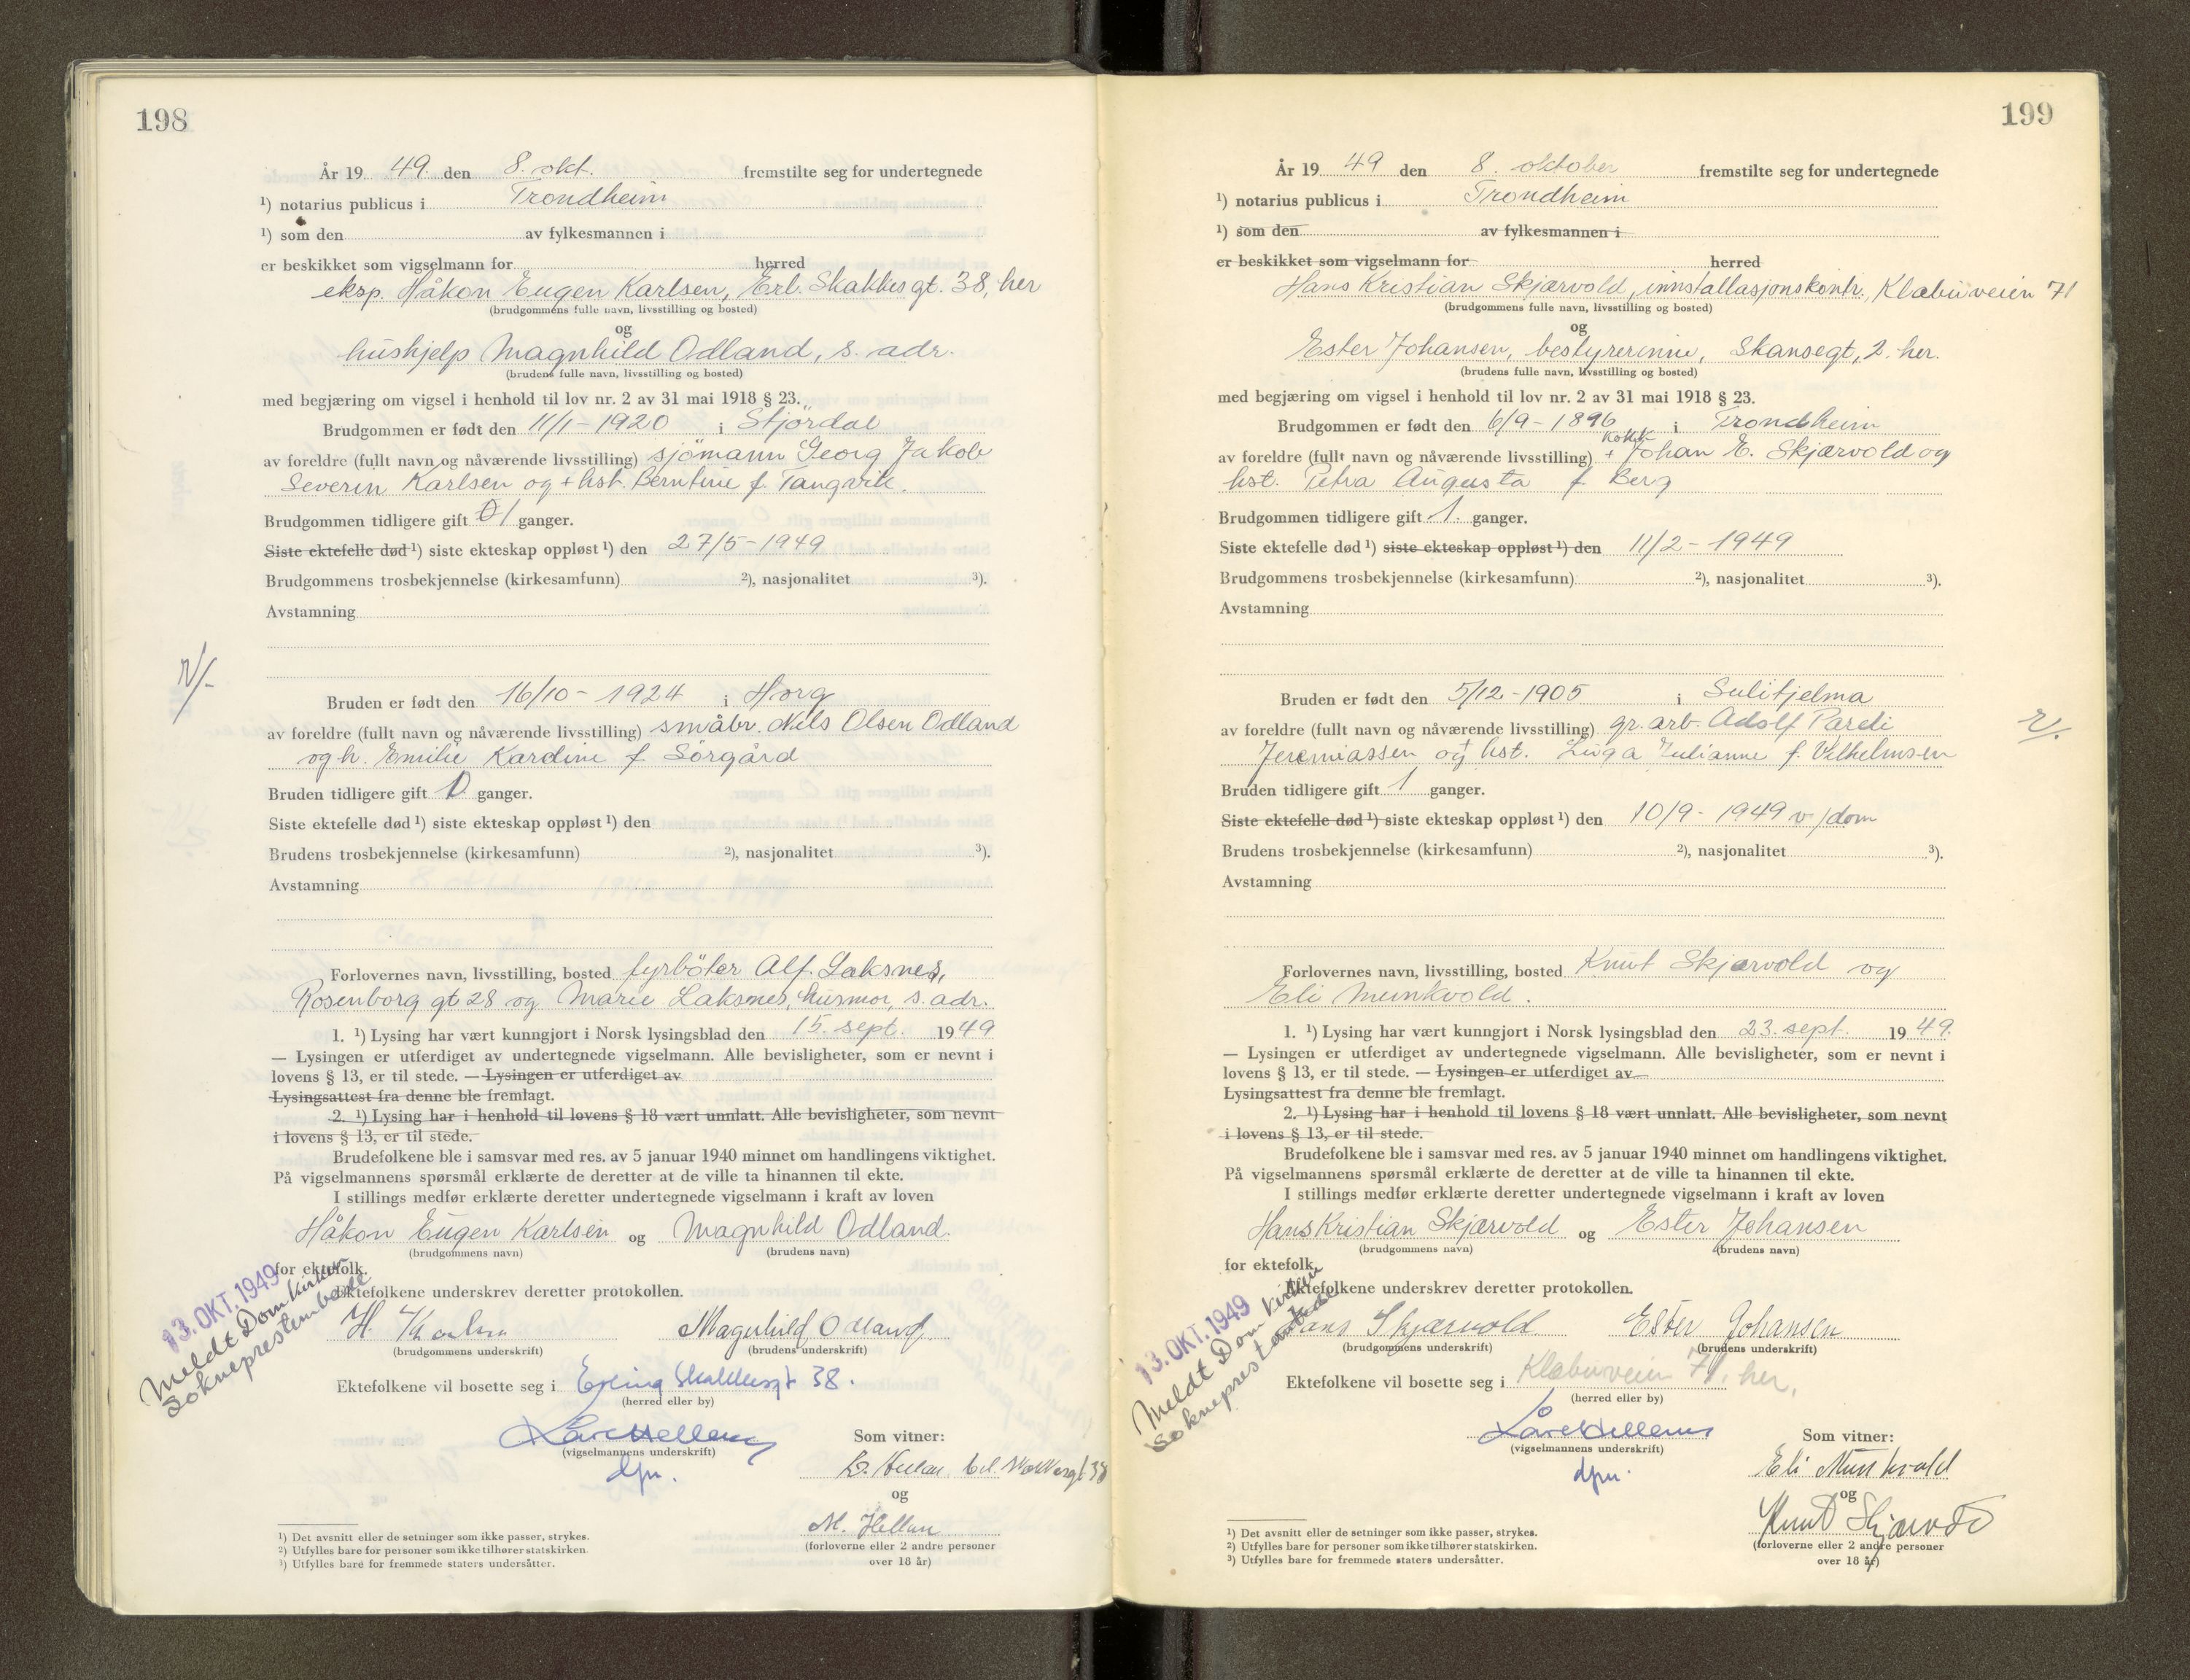 198
År 19 49. den 8. okt. fremstilte seg for undertegnede
¹) notarius publicus i Trondheim
¹) som den av fylkesmannen i
er beskikket som vigselmann for herred
eksp. Håkon Eugen Karlsen, Erl. Skakkes gt. 38, her
(brudgommens fulle navn, livsstilling og bosted)
og
hushjelp Magnhild Odland, s. adr.
(brudens fulle navn, livsstilling og bosted)
med begjæring om vigsel i henhold til lov nr. 2 av 31 mai 1918 § 23.
Brudgommen er født den 11/1 - 1920 i Stjördal
av foreldre (fullt navn og nåværende livsstilling) sjömann Georg Jakob
Severin Karlsen og + hst. Berntine f. Tangvik.
Brudgommen tidligere gift 0 1 ganger.
Siste ektefelle død ¹) siste ekteskap oppløst ¹) den 27/5 - 1949
Brudgommens trosbekjennelse (kirkesamfunn) ²), nasjonalitet ³).
Avstamning
Bruden er født den 16/10 - 1924 i Horg
av foreldre (fullt navn og nåværende livsstilling) småbr. Nils Olsen Odland
og h. Emilie Kardine f Sörgård
Bruden tidligere gift 0 ganger.
Siste ektefelle død ¹) siste ekteskap oppløst ¹) den
Brudens trosbekjennelse (kirkesamfunn) ²), nasjonalitet ³).
Avstamning
Forlovernes navn, livsstilling, bosted fyrböter Alf. Laksnes,
Rosenborg gt 28 og Marie Laksnes, husmor, s. adr.
1. ¹) Lysing har vært kunngjort i Norsk lysingsblad den 15. sept. 1949
— Lysingen er utferdiget av undertegnede vigselmann. Alle bevisligheter, som er nevnt i
lovens § 13, er til stede. — Lysingen er utferdiget av
Lysingsattest fra denne ble fremlagt.
2. ¹) Lysing har i henhold til lovens § 18 vært unnlatt. Alle bevisligheter, som nevnt
i lovens § 13, er til stede.
Brudefolkene ble i samsvar med res. av 5 januar 1940 minnet om handlingens viktighet.
På vigselmannens spørsmål erklærte de deretter at de ville ta hinannen til ekte.
I stillings medfør erklærte deretter undertegnede vigselmann i kraft av loven
Håkon Eugen Karlsen og Magnhild Odland.
(brudgommens navn) (brudens navn)
for ektefolk.
Ektefolkene underskrev deretter protokollen.
13. OKT. 1949
Meldt Domkirken
Sokneprestembede
H. Karlsen Magnhild Odland
(brudgommens underskrift) (brudens underskrift)
Ektefolkene vil bosette seg i Erling Skakkesgt 38.
(herred eller by)
(vigselmannens underskrift)
dfm.
Som vitner:
og
M. Hellan
(forloverne eller 2 andre personer
over 18 år)
¹) Det avsnitt eller de setninger som ikke passer, strykes.
²) Utfylles bare for personer som ikke tilhører statskirken.
³) Utfylles bare for fremmede staters undersåtter.
199
År 19 49 den 8. oktober fremstilte seg for undertegnede
¹) notarius publicus i Trondheim
¹) som den av fylkesmannen i
er beskikket som vigselmann for herred
Hans Kristian Skjærvold, innstallasjonskontr., Klæbuveien 71
(brudgommens fulle navn, livsstilling og bosted)
og
Ester Johansen, bestyrerinne, Skansegt, 2. her.
(brudens fulle navn, livsstilling og bosted)
med begjæring om vigsel i henhold til lov nr. 2 av 31 mai 1918 § 23.
Brudgommen er født den 6/9 - 1896 i Trondheim
av foreldre (fullt navn og nåværende livsstilling) + kokk Johan E. Skjærvold og
hst. Petra Augusta f Berg
Brudgommen tidligere gift 1. ganger.
Siste ektefelle død ¹) siste ekteskap oppløst ¹) den 11/2 - 1949
Brudgommens trosbekjennelse (kirkesamfunn) ²), nasjonalitet ³).
Avstamning
Bruden er født den 5/12 - 1905 i Sulitjelma
av foreldre (fullt navn og nåværende livsstilling) gr. arb. Adolf Pareli
Jeremiassen og + hst. Julianne f. Vilhelmsen
Bruden tidligere gift 1 ganger.
Siste ektefelle død ¹) siste ekteskap oppløst ¹) den 10/9 - 1949 v/dom
Brudens trosbekjennelse (kirkesamfunn) ²), nasjonalitet ³).
Avstamning
Forlovernes navn, livsstilling, bosted Knut Skjærvold og
Eli Munkvold.
1. ¹) Lysing har vært kunngjort i Norsk lysingsblad den 23. sept. 19 49.
— Lysingen er utferdiget av undertegnede vigselmann. Alle bevisligheter, som er nevnt i
lovens § 13, er til stede. — Lysingen er utferdiget av
Lysingsattest fra denne ble fremlagt.
2. ¹) Lysing har i henhold til lovens § 18 vært unnlatt. Alle bevisligheter, som nevnt
i lovens § 13, er til stede.
Brudefolkene ble i samsvar med res. av 5 januar 1940 minnet om handlingens viktighet.
På vigselmannens spørsmål erklærte de deretter at de ville ta hinannen til ekte.
I stillings medfør erklærte deretter undertegnede vigselmann i kraft av loven
Hans Kristian Skjærvold og Ester Johansen
(brudgommens navn) (brudens navn)
for ektefolk.
Ektefolkene underskrev deretter protokollen.
13. OKT. 1949
Meldt Domkirken
Sokneprestembede
Hans Skjærvold Ester Johansen
(brudgommens underskrift) (brudens underskrift)
Ektefolkene vil bosette seg i Klæbuveien 71. her.
(herred eller by)
(vigselmannens underskrift)
dfm.
Som vitner:
Eli Munkvold
og
Knut Skjærvold
(forloverne eller 2 andre personer
over 18 år)
¹) Det avsnitt eller de setninger som ikke passer, strykes.
²) Utfylles bare for personer som ikke tilhører statskirken.
³) Utfylles bare for fremmede staters undersåtter.